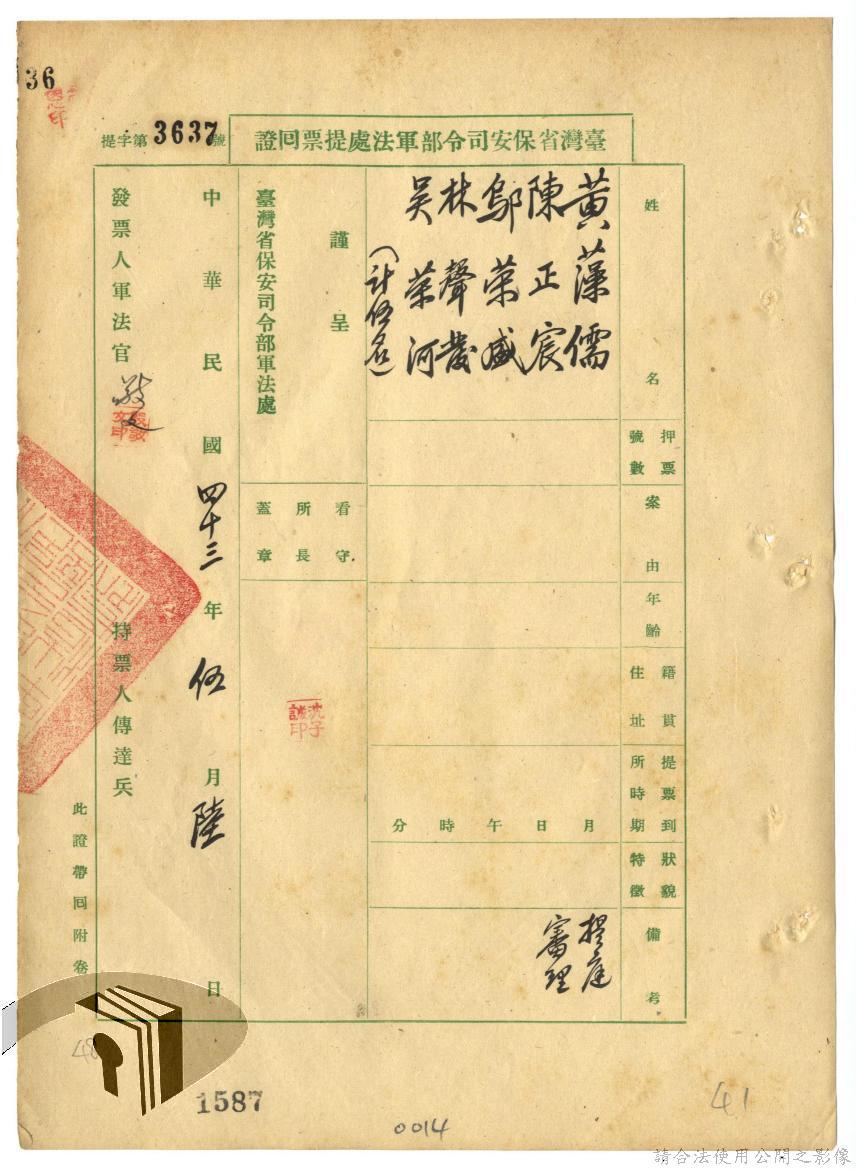 36
提字第3637號
臺灣省保安司令部軍法處提票回證
姓名
黃藻儒
陳正宸
鄔榮盛
林聲發
吳榮河
(計伍名)
押票號數
案由
年齡
籍貫住址
提票到所時期
月日午時分
狀貌特徵
備考
提庭
審理
謹呈
臺灣省保安司令部軍法處
看守所長蓋章
沈子誠印
中華民國四十三年伍月陸日
發票人軍法官
持票人傳達兵
此證帶回附卷
48
1587
0014
41
請合法使用公開之影像